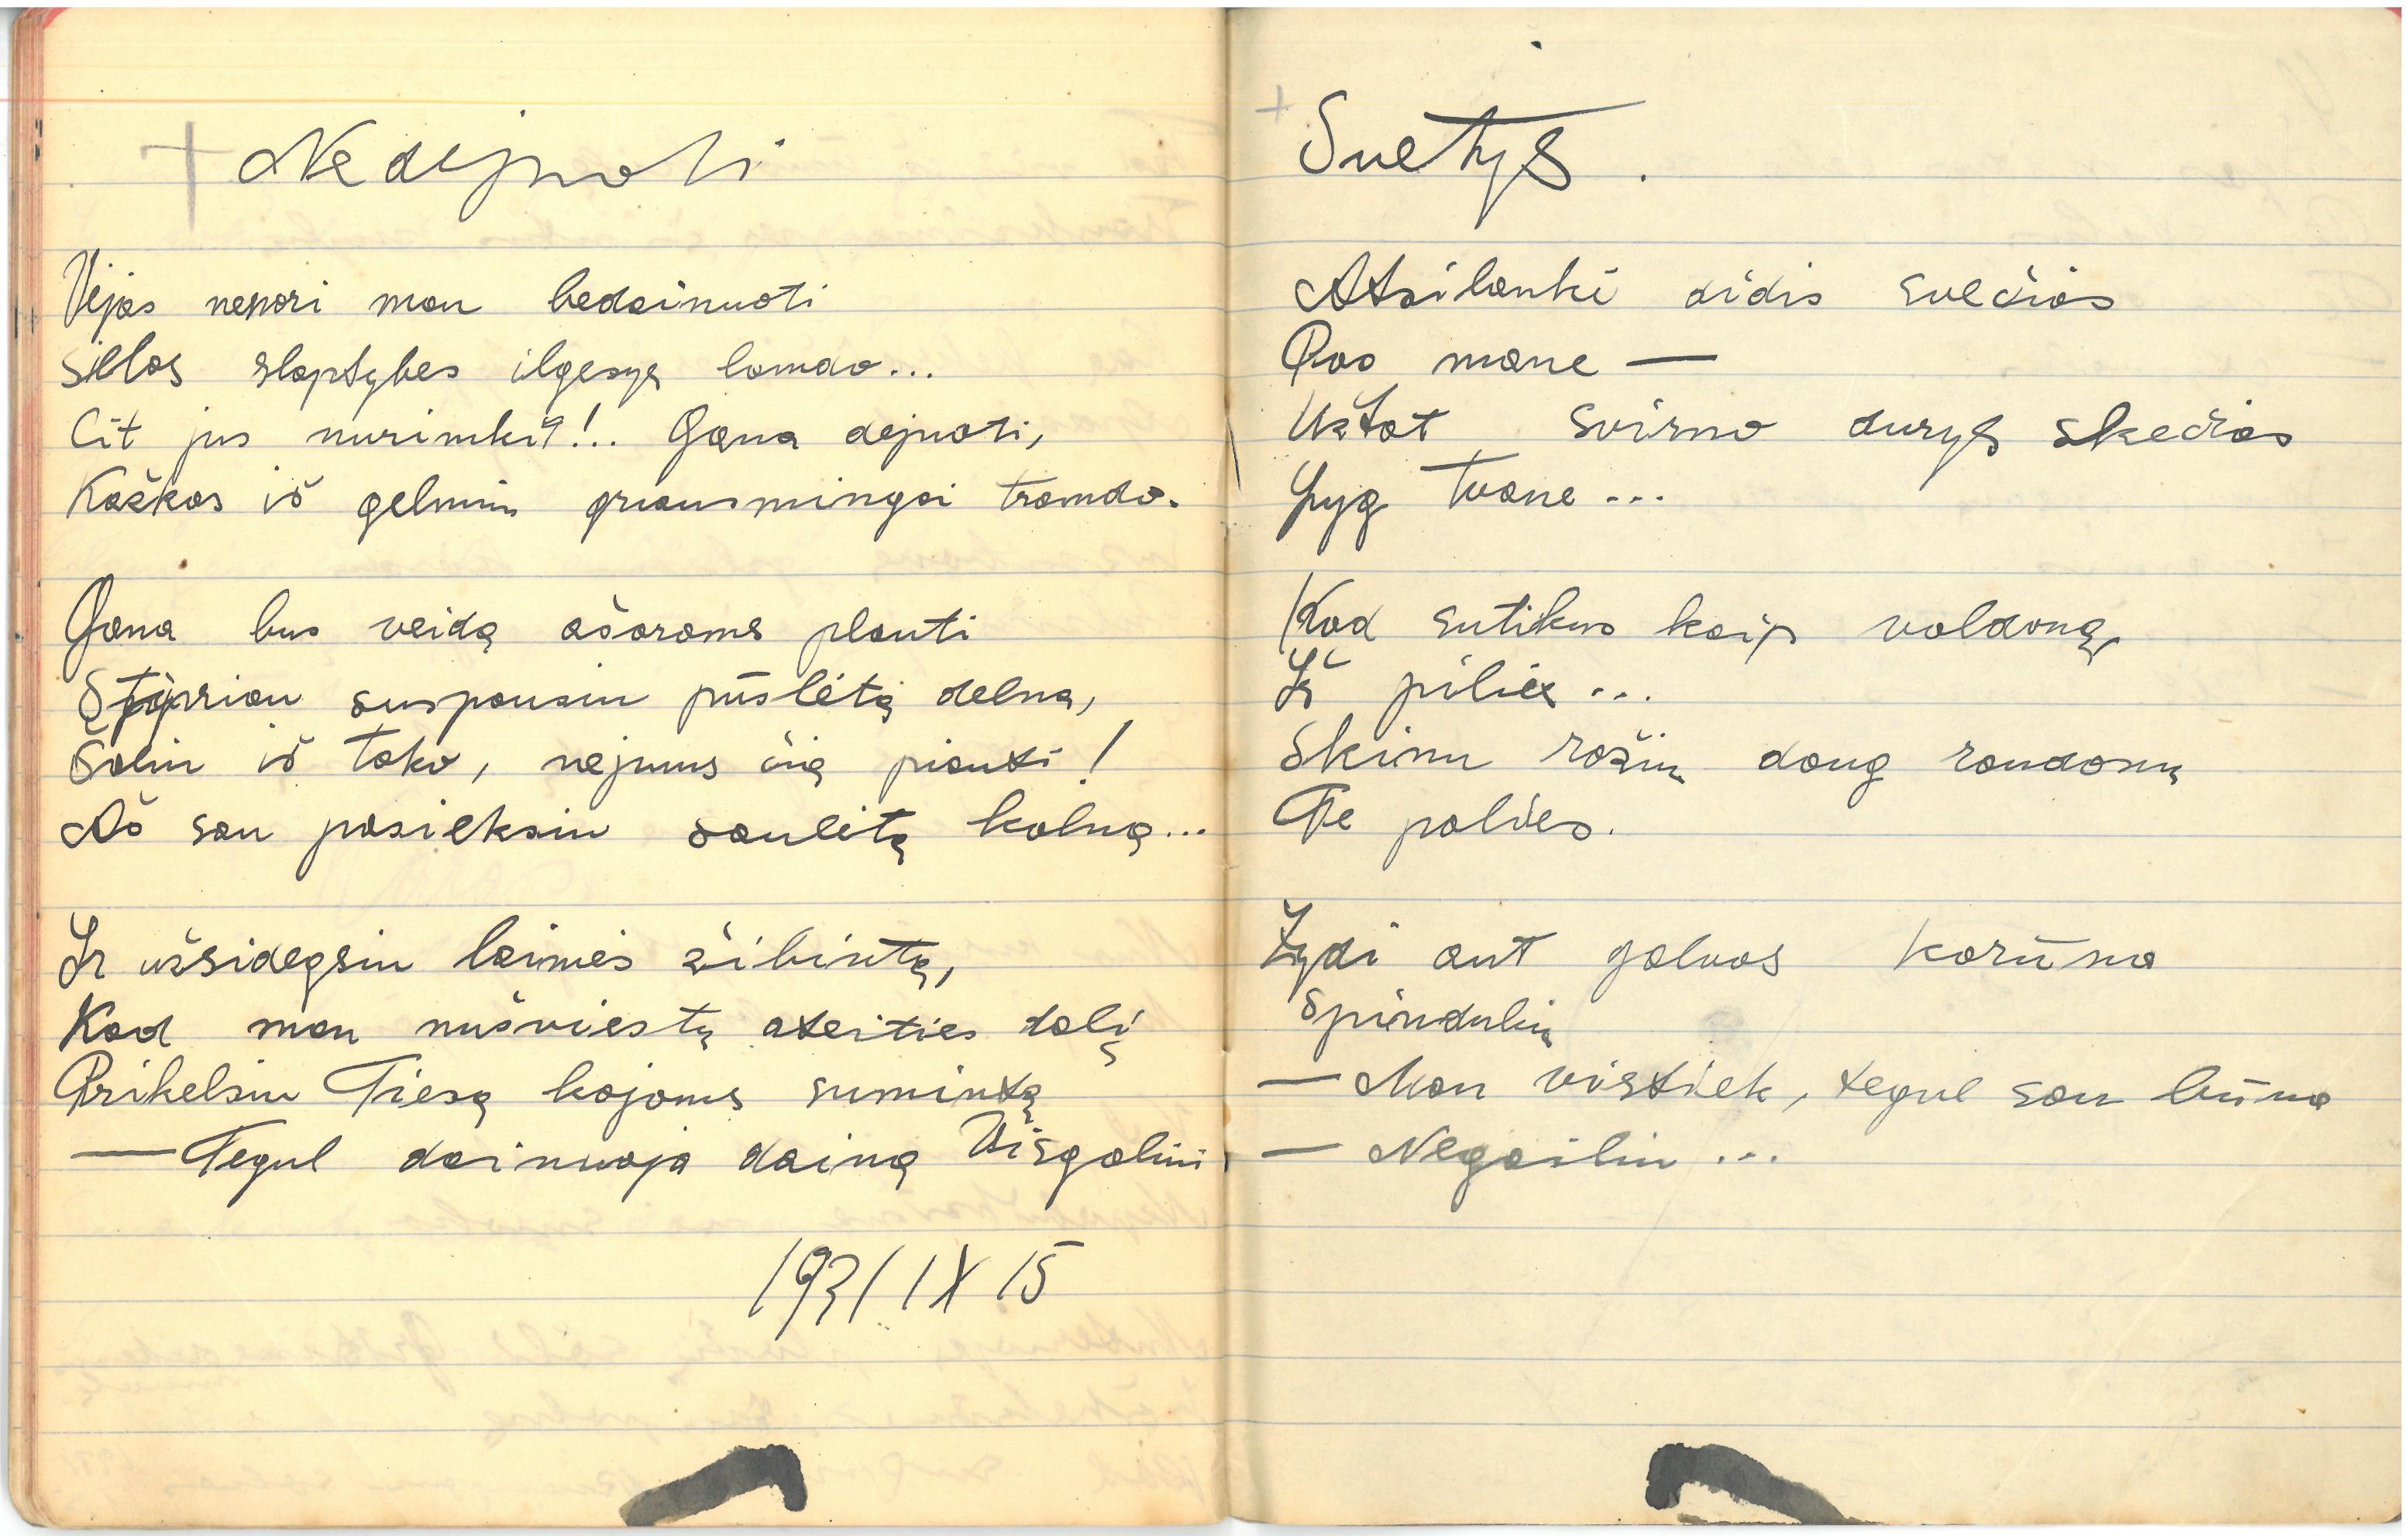 + Nedejuoti
Vejas nenori man bedainuoti
Sielos slaptybes ilgesys lamdo...
Cit jus nurimkit!.. Gana dejuoti,
Kažkas iš gelmiu griausmingai tramdo.
Gana bus veidą ašaroms plauti
Stipriau suspausiu pūslėtą delną,
Šalin iš tako, nejums čią piauti!
Aš sau pasieksiu saulėtą kalną...
Ir užsidegsiu laimės žibintą,
Kad man nušviestų ateities dalį
Prikelsiu Tiesą kojoms sumintą
— Tegul dainuoja dainą Visgalini
1931 IX 15
+ Svetys.
Atsilankė didis svečias
Pas mane —
Užtat svirno durys skečias
Lyg tvane...
Kad sutikus kaip valdoną,
Iš pilies...
Skinu rožių daug raudonų
Te palies.
Žydi ant galvos karūna
Spindulių
— Man vistiek, tegul sau būna
— Negailiu...